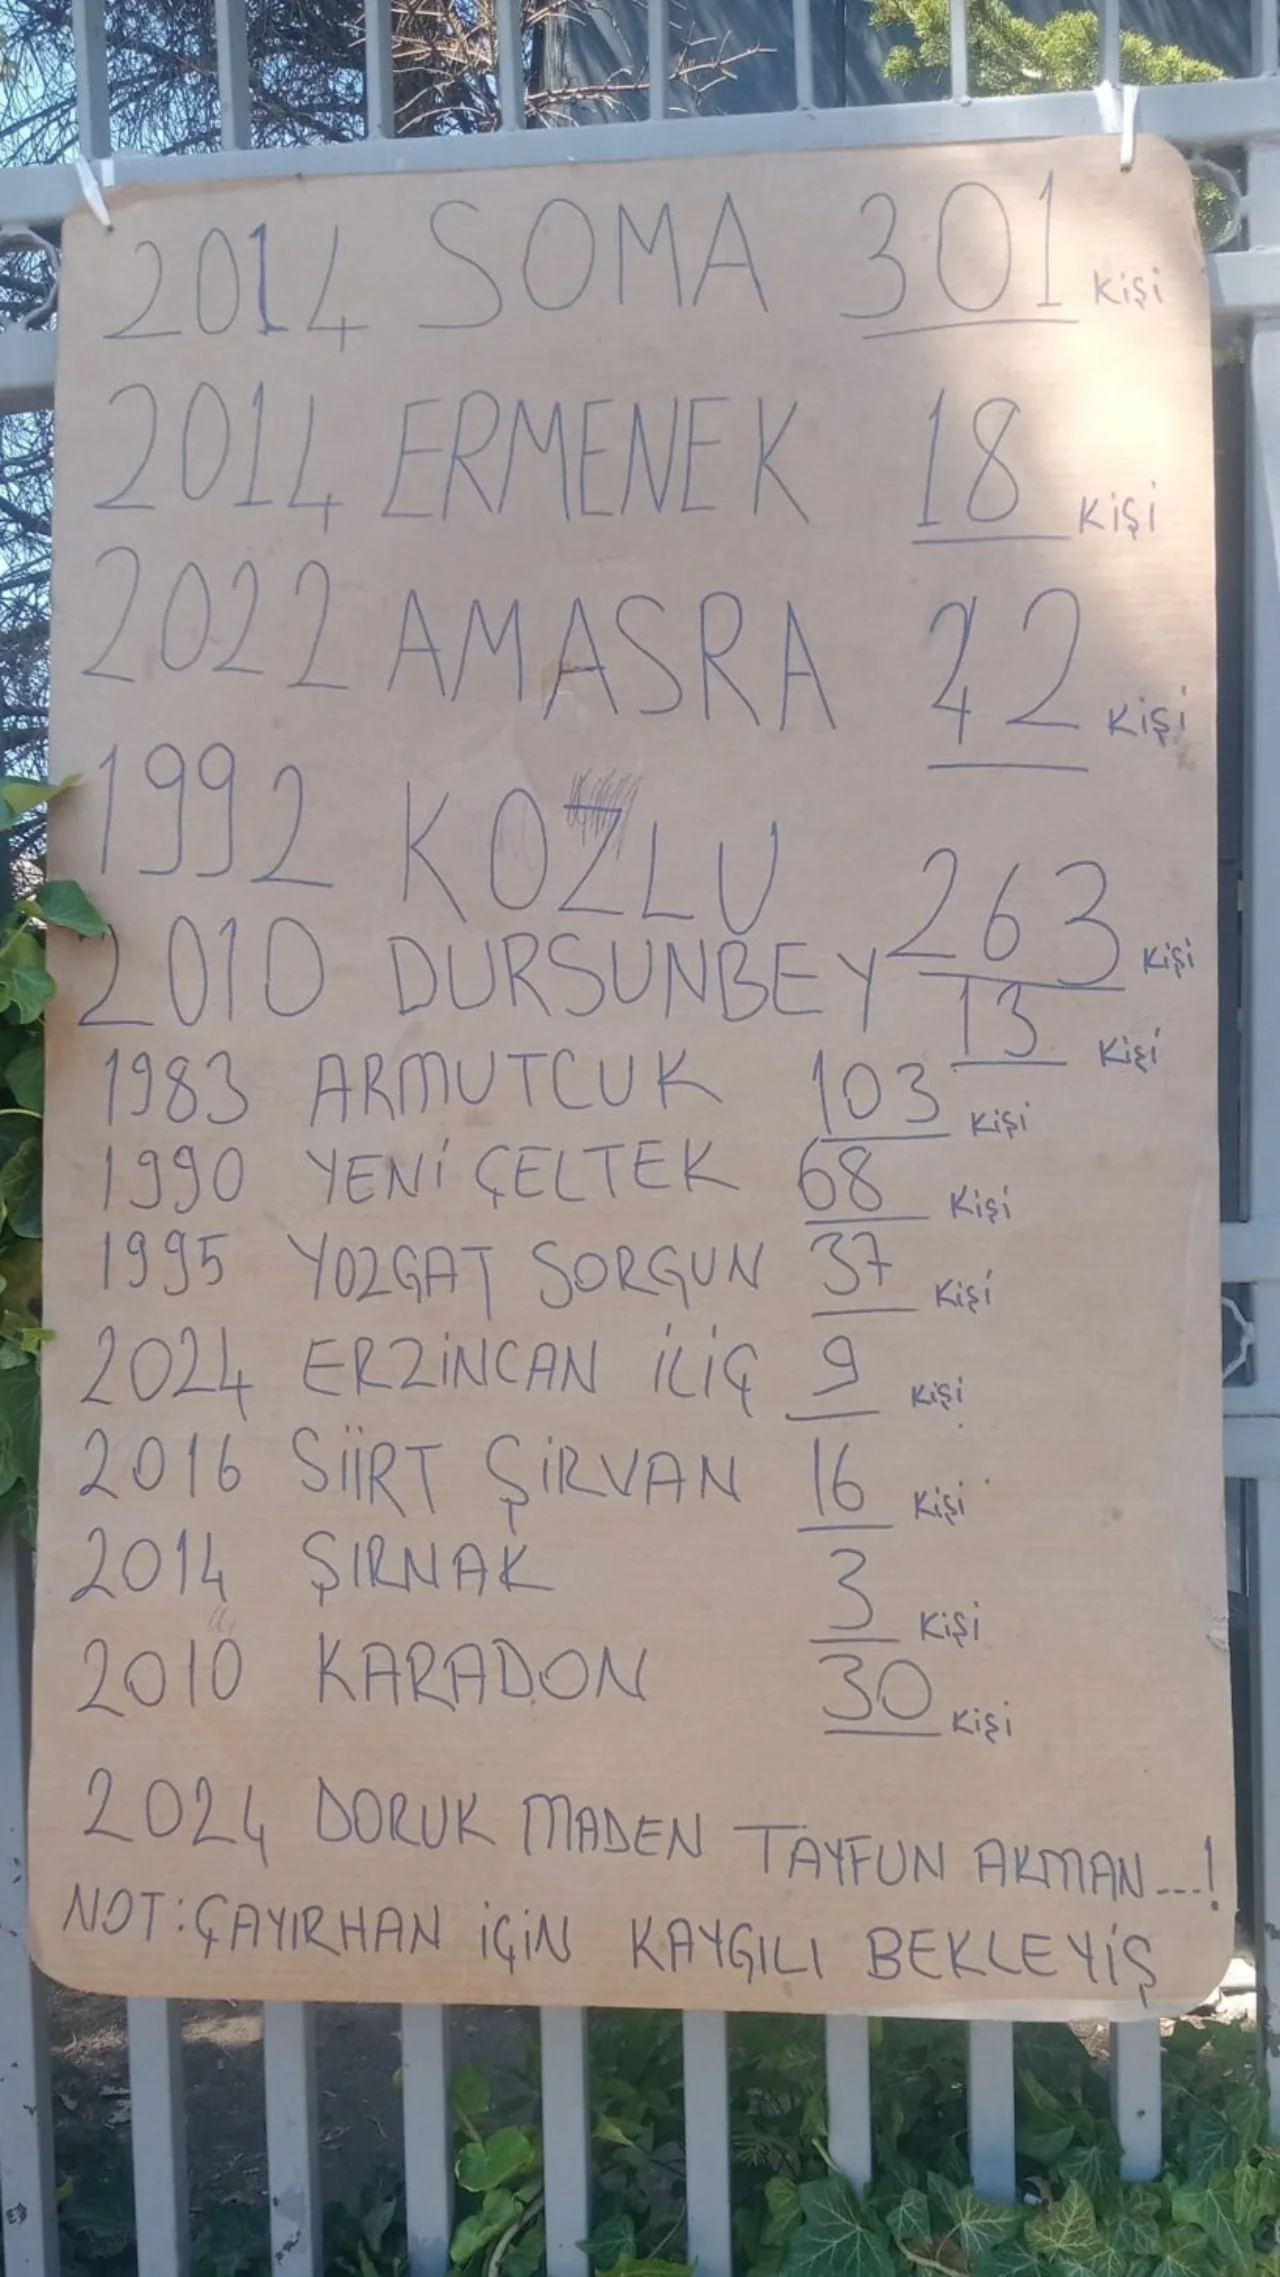 2014 SOMA 301 kişi
2014 ERMENEK 18 kişi
2022 AMASRA 42 kişi
1992 KOZLU 263 kişi
2010 DURSUNBEY 13 kişi
1983 ARMUTCUK 103 kişi
1990 YENİ ÇELTEK 68 kişi
1995 YOZGAT SORGUN 37 kişi
2024 ERZİNCAN İLİÇ 9 kişi
2016 SİİRT ŞİRVAN 16 kişi
2014 ŞIRNAK 3 kişi
2010 KARADON 30 kişi
2024 DORUK MADEN TAYFUN AKMAN...!
NOT: ÇAYIRHAN İÇİN KAYGILI BEKLEYİŞ